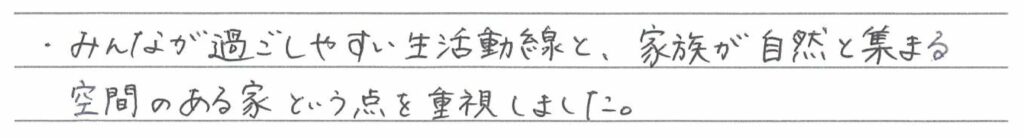 ・みんなが過ごしやすい生活動線と、家族が自然と集まる
空間のある家という点を重視しました。